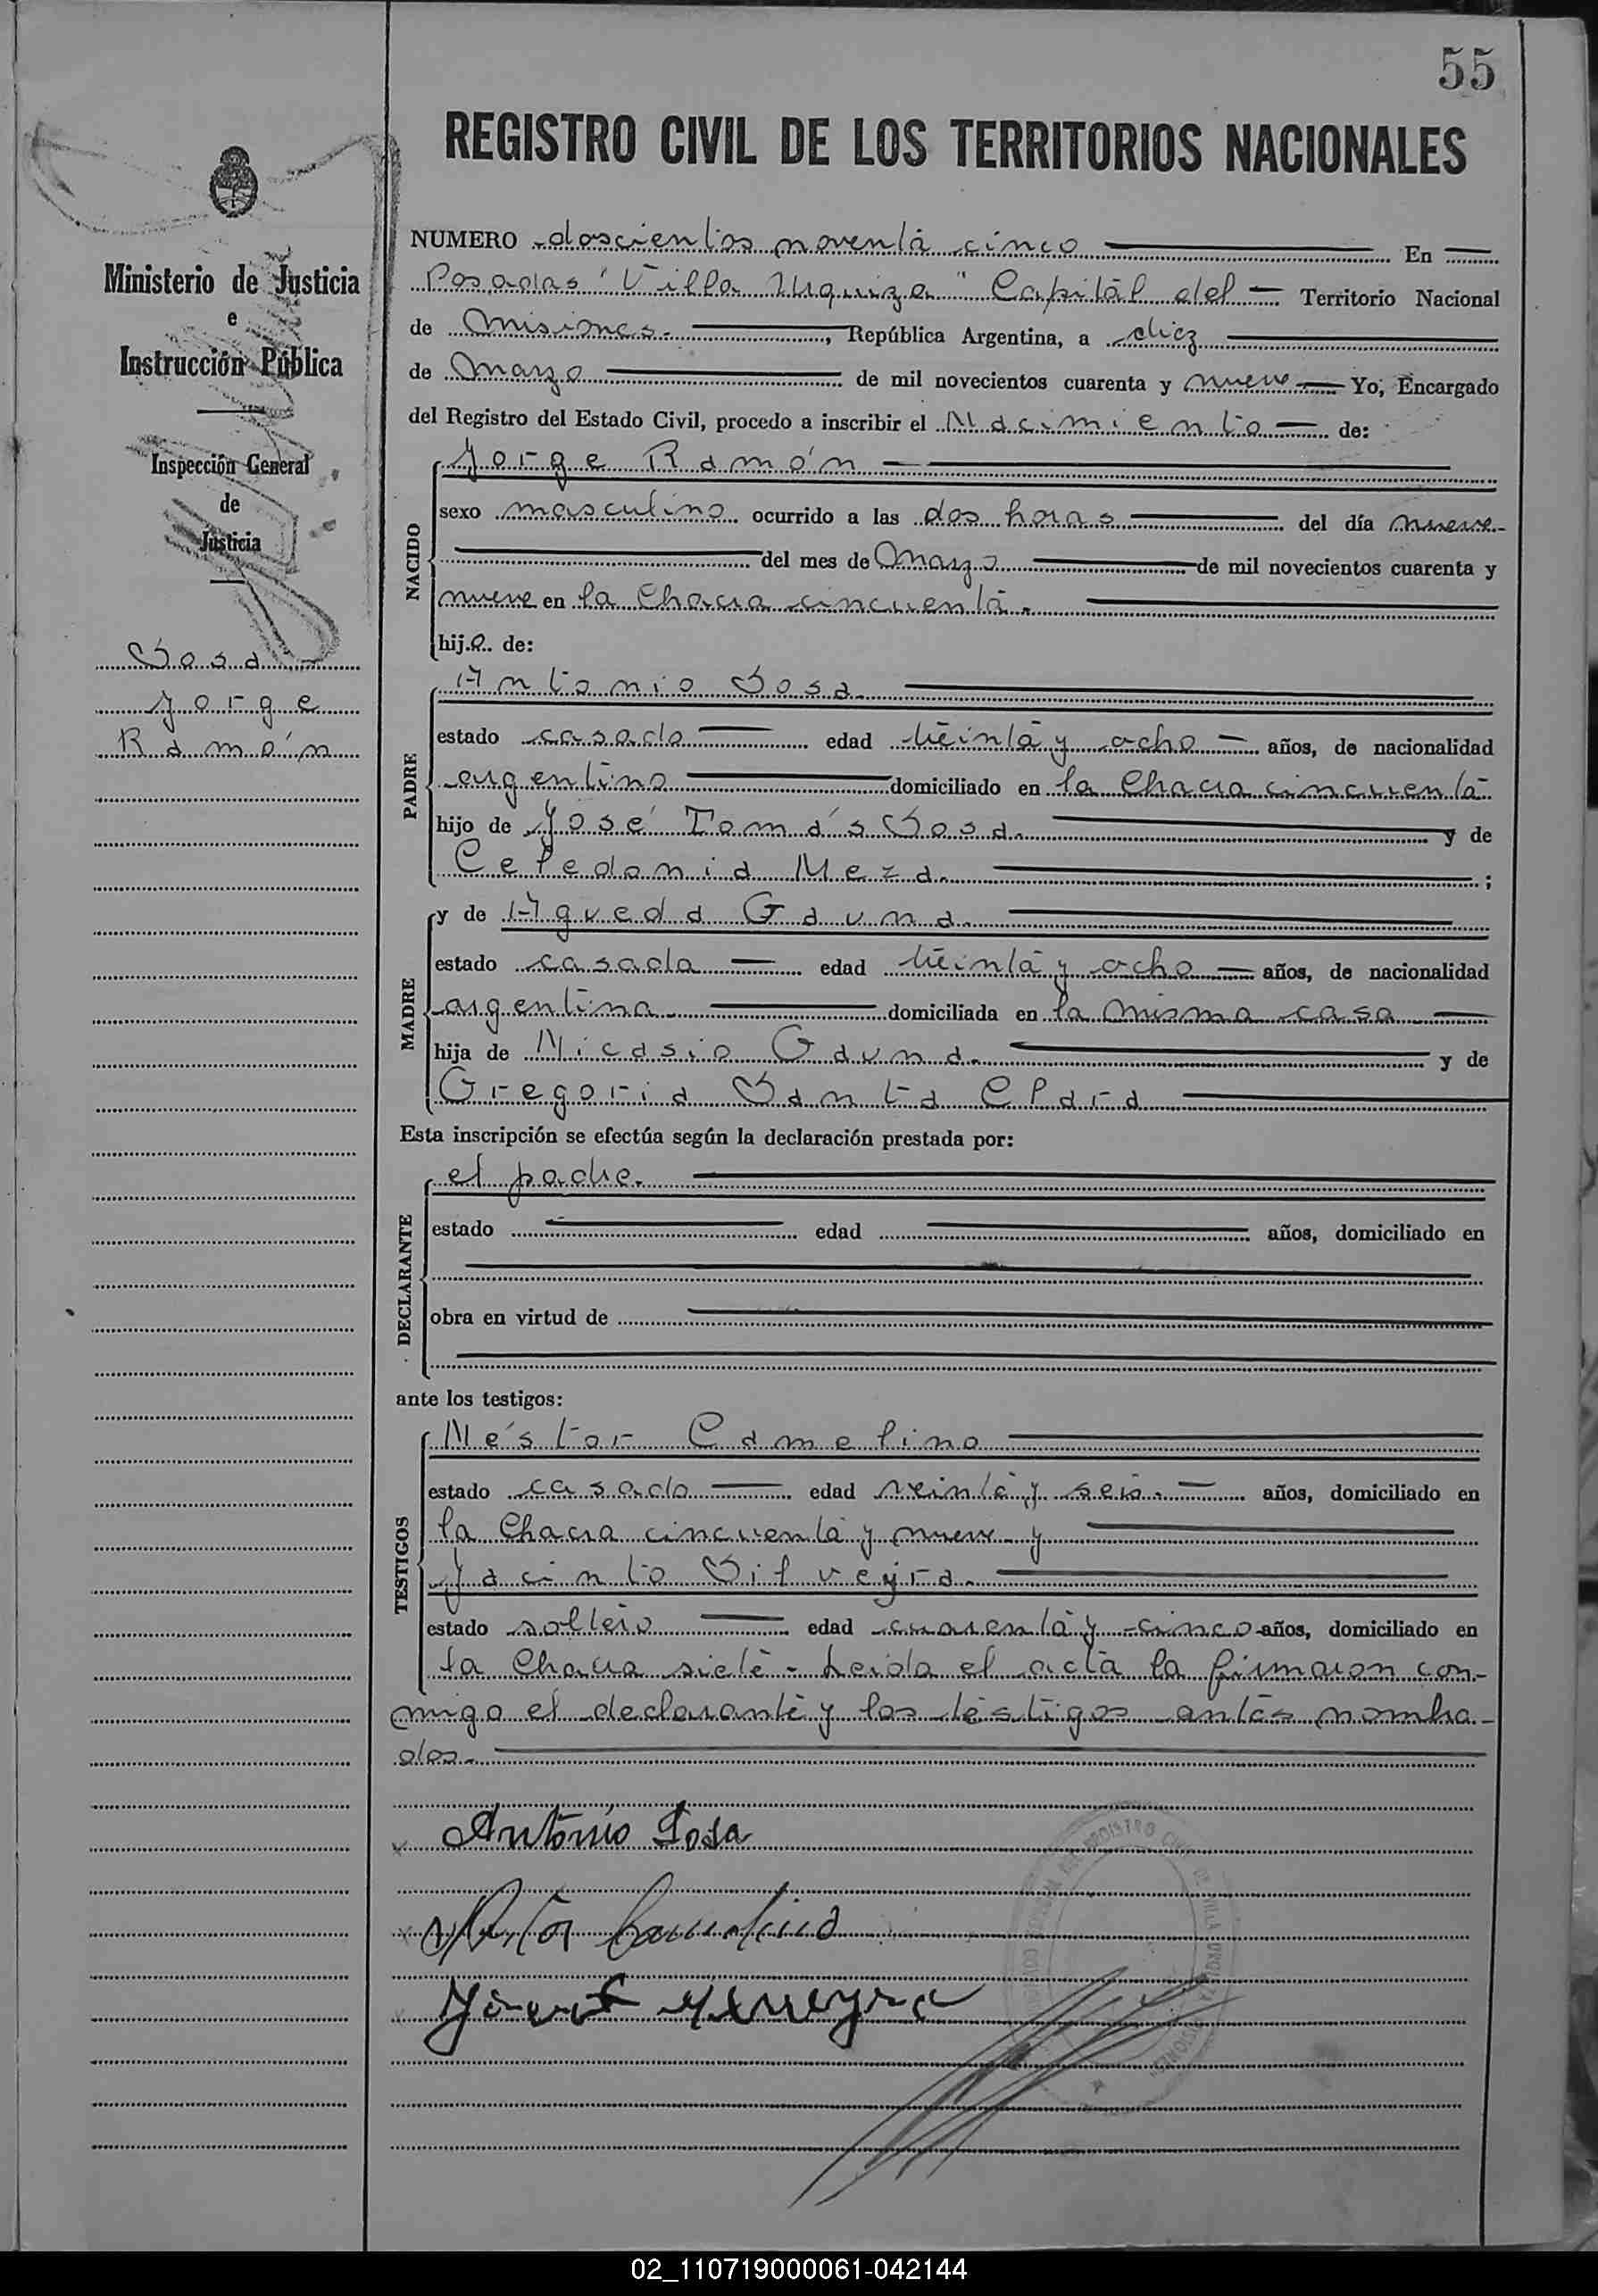 55
REGISTRO CIVIL DE LOS TERRITORIOS NACIONALES
Ministerio de Justicia
e
Instrucción Pública
Inspección General
de
Justicia
Sosa
Jorge
Ramón
NUMERO doscientos noventa cinco En
Posadas "Villa Urquiza" Capital del Territorio Nacional
de Misiones. , República Argentina, a diez
de Marzo de mil novecientos cuarenta y nueve Yo, Encargado
del Registro del Estado Civil, procedo a inscribir el Nacimiento de:
NACIDO
Jorge Ramón
sexo masculino ocurrido a las dos horas del día nueve
del mes de Marzo de mil novecientos cuarenta y
nueve en la Chacra cincuenta.
hijo de:
PADRE
Antonio Sosa.
estado casado edad treinta y ocho años, de nacionalidad
argentino domiciliado en la Chacra cincuenta
hijo de José Tomás Sosa. y de
Celedonia Meza. ;
MADRE
y de Agueda Gauna.
estado casada edad treinta y ocho años, de nacionalidad
argentina domiciliada en la misma casa
hija de Nicasio Gauna. y de
Gregoria Santa Clara
Esta inscripción se efectúa según la declaración prestada por:
DECLARANTE
el padre.
estado edad años, domiciliado en
obra en virtud de
ante los testigos:
TESTIGOS
Néstor Camelino
estado casado edad veinte y seis. años, domiciliado en
la Chacra cincuenta y nueve y
Jacinto Silveyra.
estado soltero edad cuarenta y cinco años, domiciliado en
la Chacra siete - Leida el acta la firmaron con-
migo el declarante y los testigos antes nombra-
dos.
Antonio Sosa
Néstor Camelino
REGISTRO CIVIL DE VILLA URQUIZA MISIONES
02_110719000061-042144